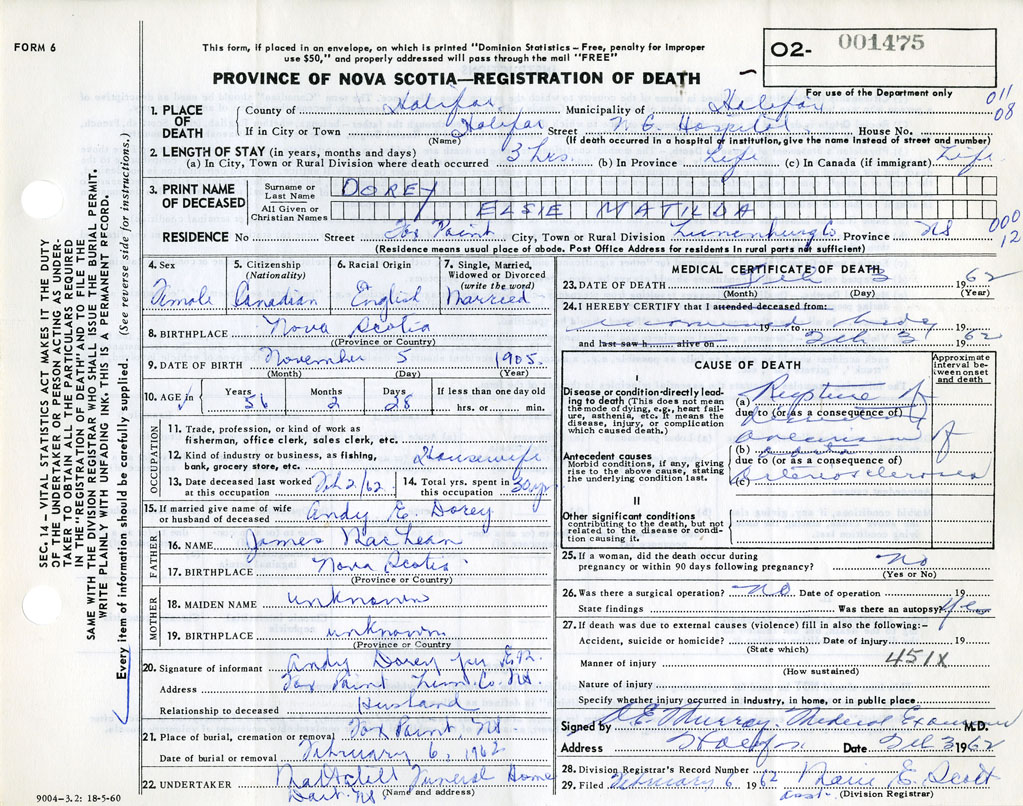 FORM 6
This form, if placed in an envelope, on which is printed "Dominion Statistics – Free, penalty for improper
use $50," and properly addressed will pass through the mail "FREE"
PROVINCE OF NOVA SCOTIA—REGISTRATION OF DEATH
O2- 001475
For use of the Department only
011
08
1. PLACE OF DEATH
County of Halifax Municipality of Halifax
If in City or Town Halifax Street V. G. Hospital House No.
(Name) (If death occurred in a hospital or institution, give the name instead of street and number)
2. LENGTH OF STAY (in years, months and days)
(a) In City, Town or Rural Division where death occurred 3 hrs. (b) In Province Life (c) In Canada (if immigrant) Life
3. PRINT NAME OF DECEASED
Surname or Last Name DOREY
All Given or Christian Names ELSIE MATILDA
RESIDENCE No Street Fox Point City, Town or Rural Division Lunenburg Co Province NS
000
12
(Residence means usual place of abode. Post Office Address for residents in rural parts not sufficient)
4. Sex Female
5. Citizenship (Nationality) Canadian
6. Racial Origin English
7. Single, Married, Widowed or Divorced (write the word) Married
8. BIRTHPLACE Nova Scotia
(Province or Country)
9. DATE OF BIRTH November 5 1905.
(Month) (Day) (Year)
10. AGE in Years 56 Months 2 Days 28 If less than one day old hrs. or min.
OCCUPATION
11. Trade, profession, or kind of work as
fisherman, office clerk, sales clerk, etc.
12. Kind of industry or business, as fishing,
bank, grocery store, etc. Housewife
13. Date deceased last worked at this occupation Feb 2/62 14. Total yrs. spent in this occupation 30 yr
15. If married give name of wife
or husband of deceased Andy E. Dorey
FATHER
16. NAME James MacLean
17. BIRTHPLACE Nova Scotia
(Province or Country)
MOTHER
18. MAIDEN NAME unknown
19. BIRTHPLACE unknown
(Province or Country)
20. Signature of informant Andy Dorey per
Address Fox Point Lun. Co. NS.
Relationship to deceased Husband
21. Place of burial, cremation or removal Fox Point NS
Date of burial or removal February 6, 1962
22. UNDERTAKER Funeral Home
Dart. NS (Name and address)
MEDICAL CERTIFICATE OF DEATH
23. DATE OF DEATH Feb 3 1962
(Month) (Day) (Year)
24. I HEREBY CERTIFY that I attended deceased from:
19 to 19
and last saw h alive on Feb 3 1962
CAUSE OF DEATH
Approximate interval between onset and death
I
Disease or condition directly leading to death (This does not mean
the mode of dying, e.g., heart failure, asthenia, etc. It means the
disease, injury, or complication which caused death.)
(a) Rupture of
due to (or as a consequence of)
Antecedent causes
Morbid conditions, if any, giving rise to the above cause, stating
the underlying condition last.
(b)
due to (or as a consequence of)
(c)
II
Other significant conditions
contributing to the death, but not related to the disease or condition causing it.
25. If a woman, did the death occur during
pregnancy or within 90 days following pregnancy? No
(Yes or No)
26. Was there a surgical operation? No. Date of operation 19
State findings Was there an autopsy? Yes
27. If death was due to external causes (violence) fill in also the following:–
Accident, suicide or homicide? Date of injury 19
(State which)
451X
Manner of injury
(How sustained)
Nature of injury
Specify whether injury occurred in industry, in home, or in public place.
Signed by E Murray. Medical Examiner M.D.
Address Halifax Date Feb 3 1962
28. Division Registrar's Record Number
29. Filed February 6 1962 Marie E. Scott
(Division Registrar)
SEC. 14 – VITAL STATISTICS ACT MAKES IT THE DUTY
OF THE UNDERTAKER OR PERSON ACTING AS UNDERTAKER
TO OBTAIN ALL THE PARTICULARS REQUIRED
IN THE "REGISTRATION OF DEATH" AND TO FILE THE
SAME WITH THE DIVISION REGISTRAR WHO SHALL ISSUE THE BURIAL PERMIT.
WRITE PLAINLY WITH UNFADING INK. THIS IS A PERMANENT RECORD.
Every item of information should be carefully supplied. (See reverse side for instructions.)
9004-3.2: 18-5-60